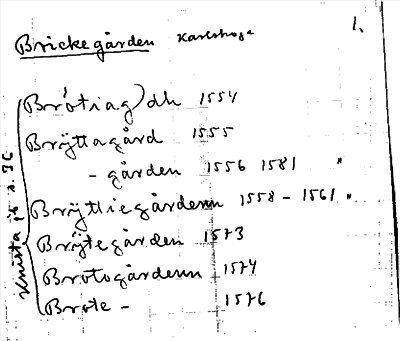 Brickegården Karlskoga 1.
Brótiag)dh 1554
Bryttagård 1555
- gården 1556 1581 "
Bryttiegårdenn 1558 - 1561 "
Brÿtegården 1573
Brotogårdenn 1574
Brote - 1576
Knista jb s. 36